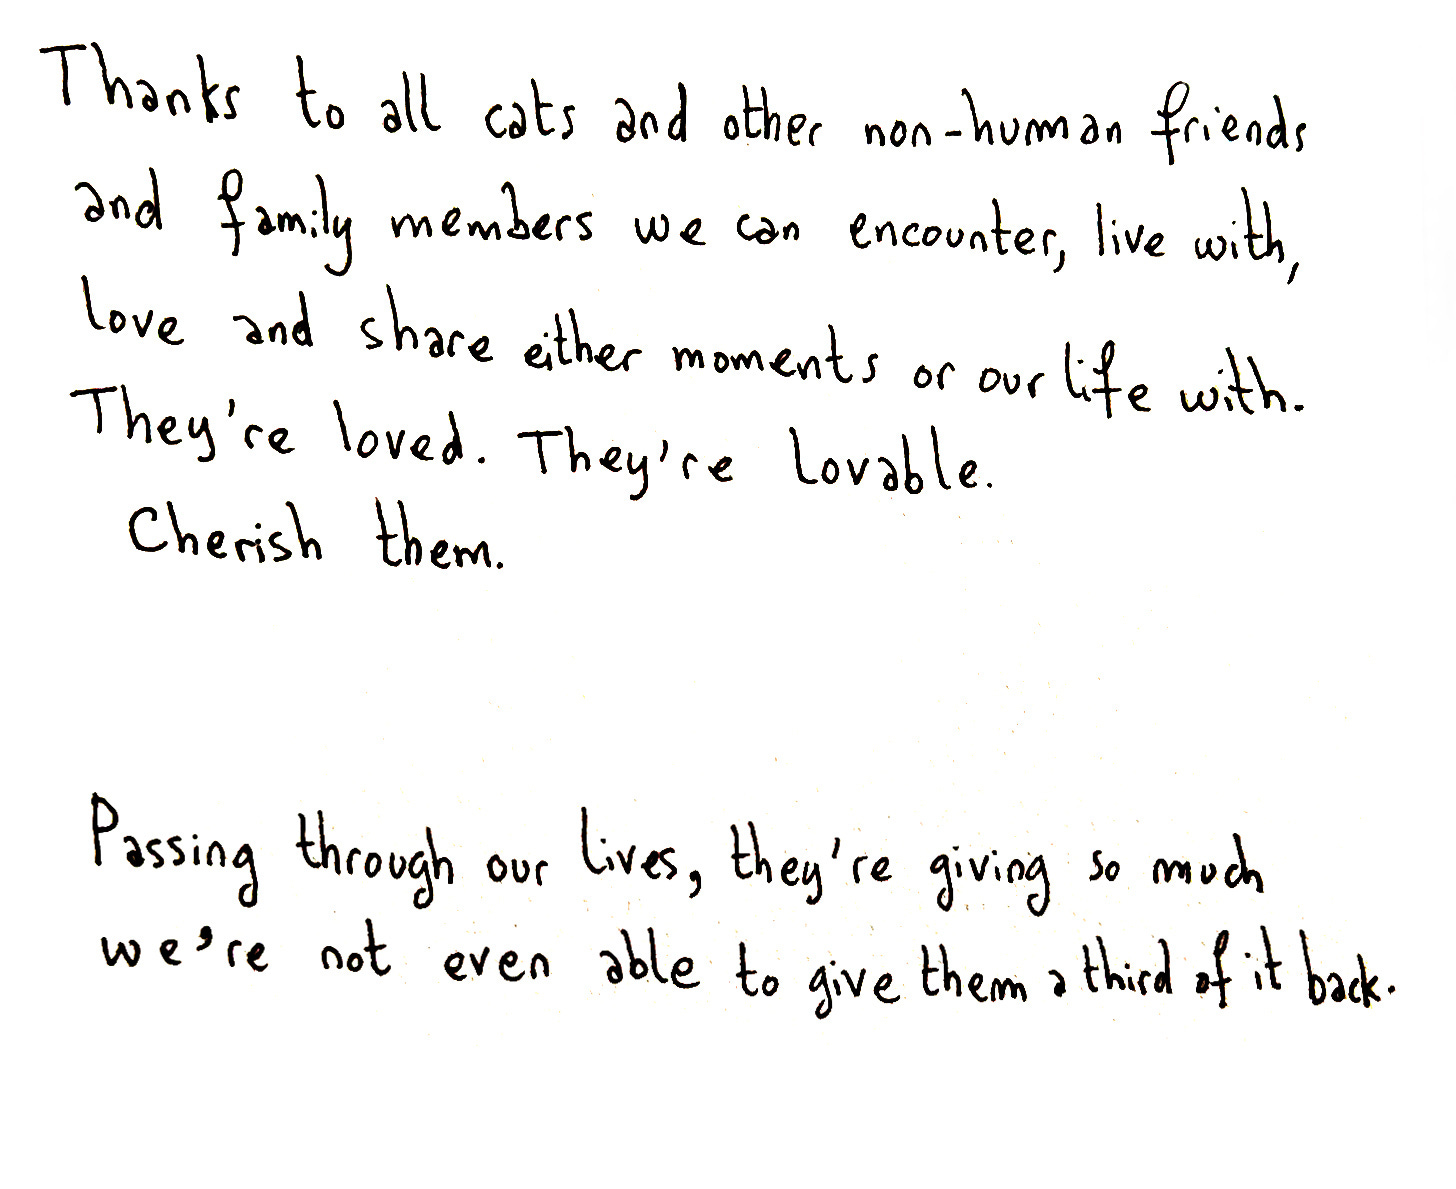 Thanks to all cats and other non-human friends
and family members we can encounter, live with,
love and share either moments or our life with.
They're loved. They're lovable.
Cherish them.
Passing through our lives, they're giving so much
we're not even able to give them a third of it back.